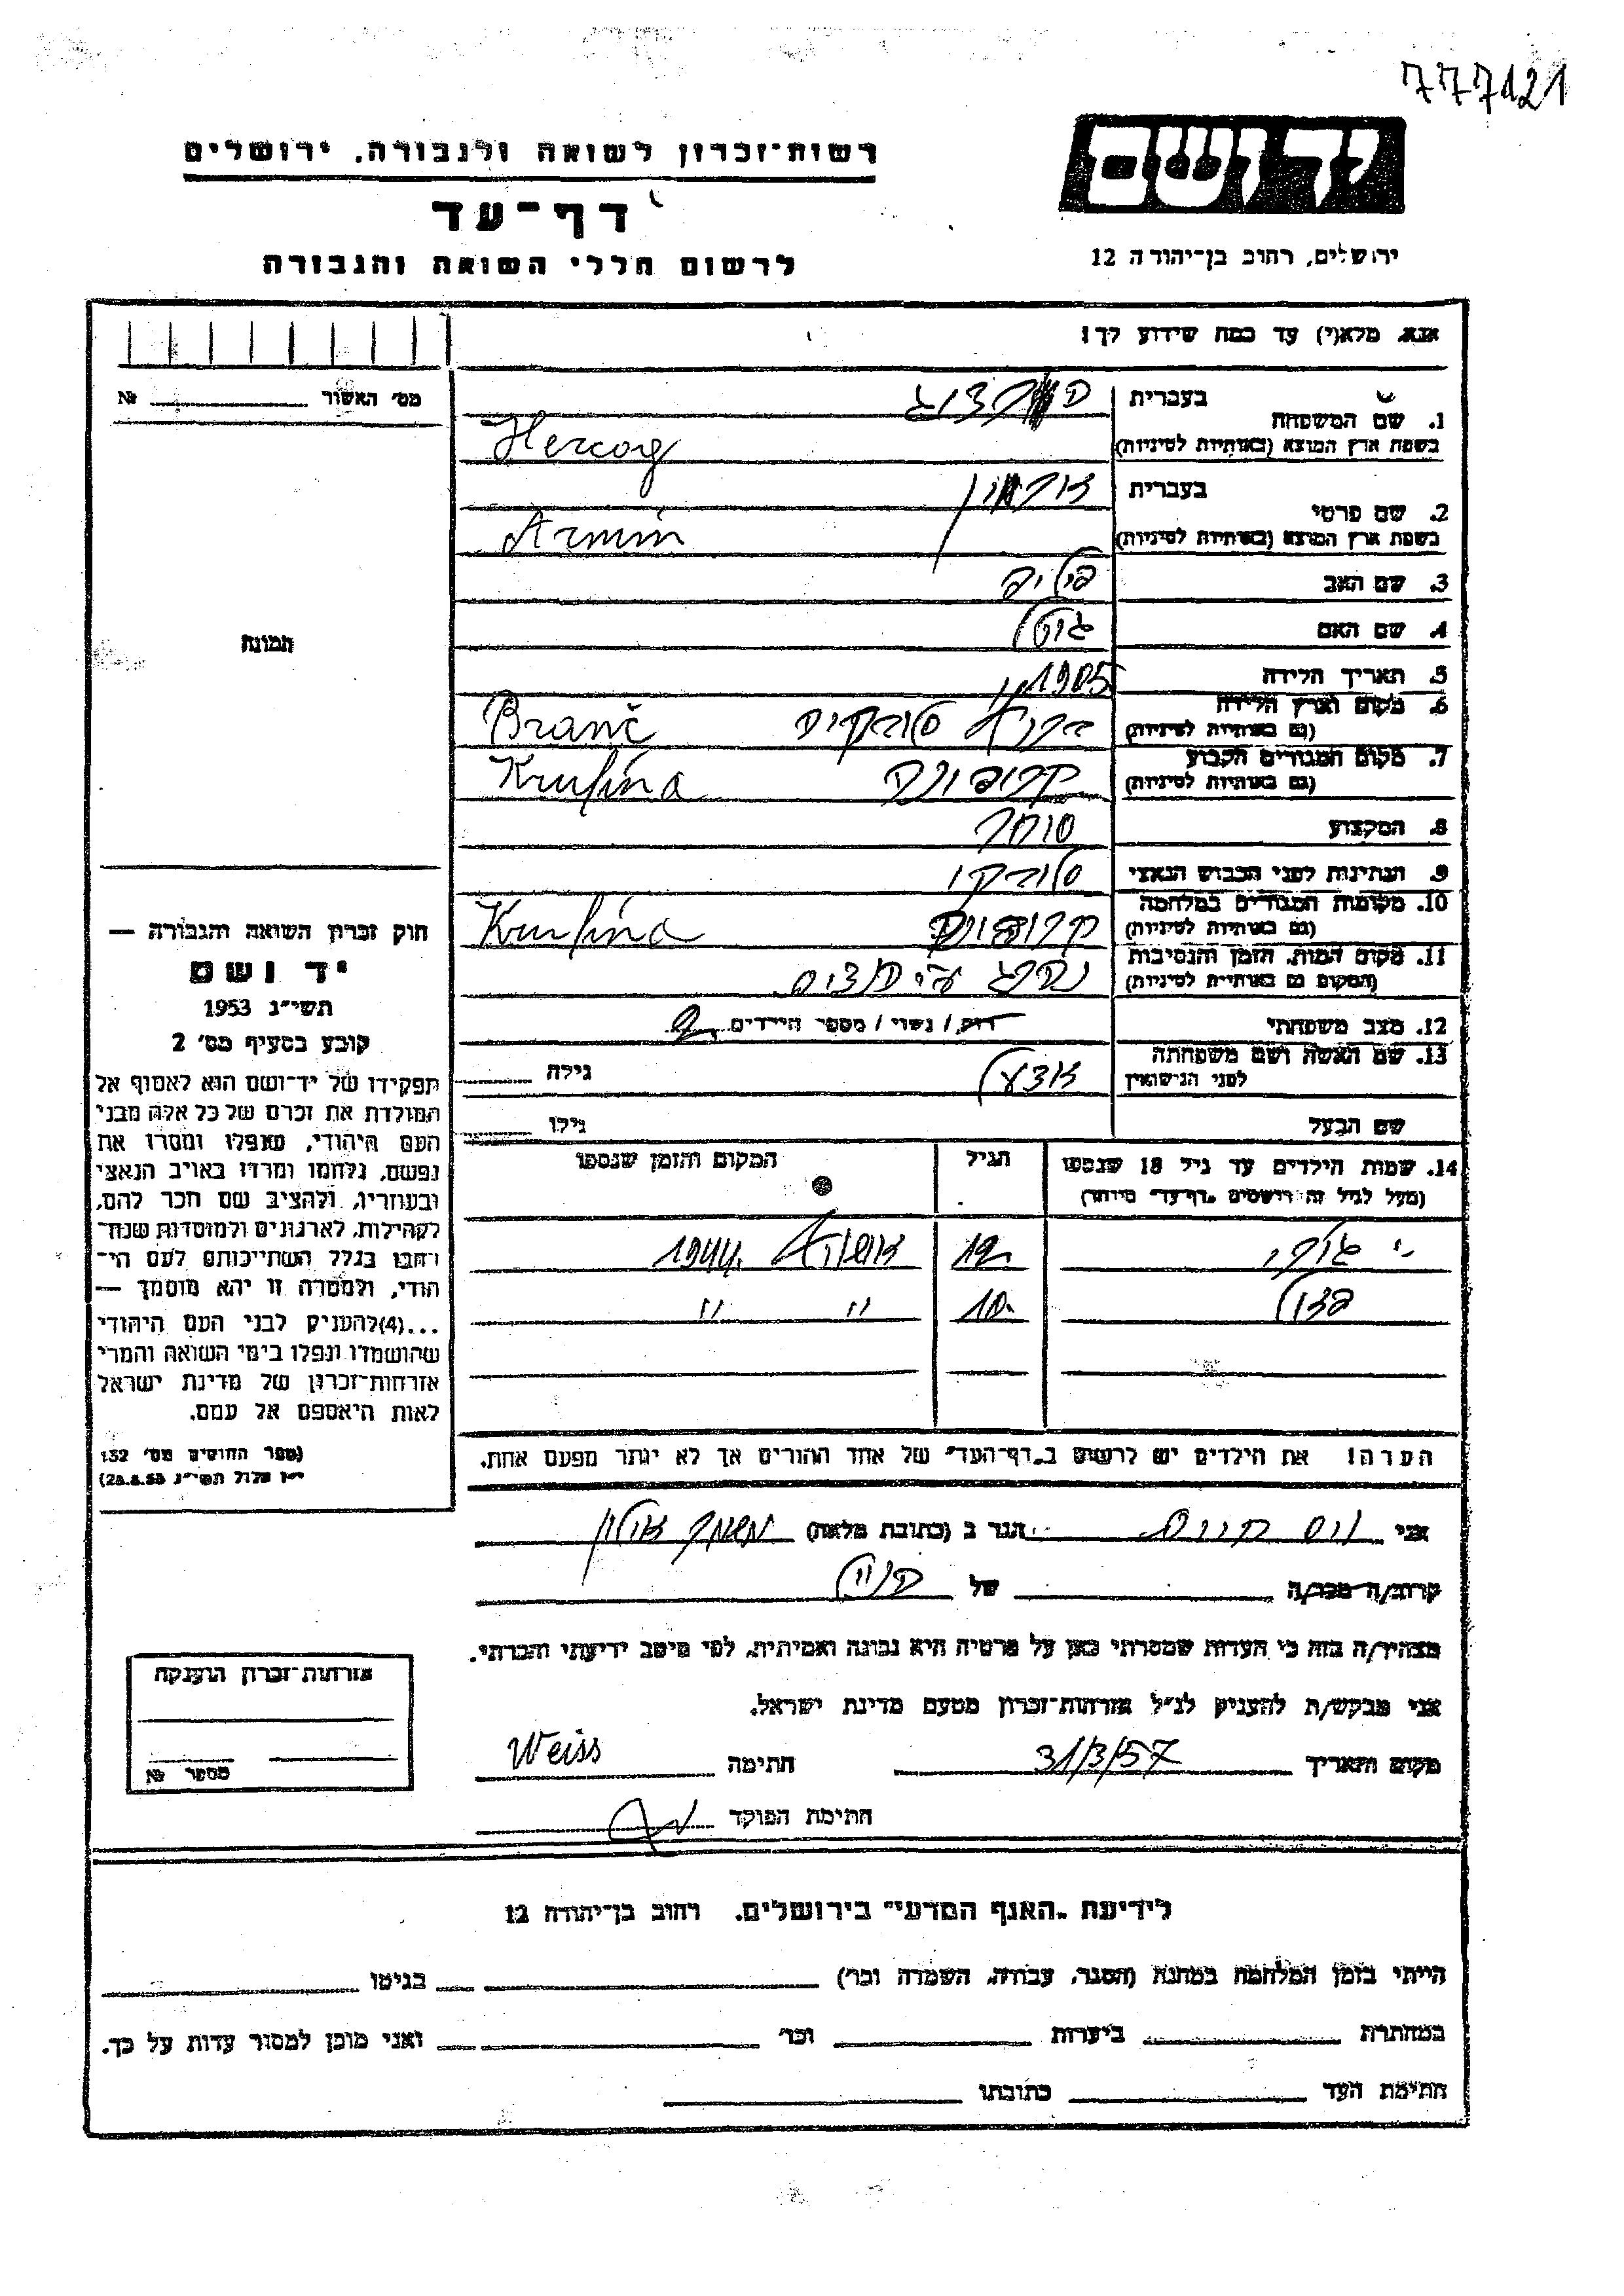 777121
יד ושם
רשות־זכרון לשואה ולגבורה, ירושלים
דף־עד
לרשום חללי השואה והגבורה
ירושלים, רחוב בן־יהודה 12
אנא, מלא(י) עד כמה שידוע לך!
מס' האשור № 
1. שם המשפחה
בעברית הרצוג
בשפת ארץ המוצא (באותיות לטיניות) Hercog
2. שם פרטי
בעברית ארמין
בשפת ארץ המוצא (באותיות לטיניות) Armin
3. שם האב פיליפ
4. שם האם
5. תאריך הלידה 1905
6. מקום וארץ הלידה
(גם באותיות לטיניות) סלובקיה Branč
7. מקום המגורים הקבוע
(גם באותיות לטיניות) קרופינה Krufina
8. המקצוע סוחר
9. הנתינות לפני הכבוש הנאצי סלובקי
10. מקומות המגורים במלחמה
(גם באותיות לטיניות) קרופינה Krufina
11. מקום המות, הזמן והנסיבות
(המקום גם באותיות לטיניות) נהרג ע"י הנצים
12. מצב משפחתי רוק/ נשוי/ מספר הילדים 2
13. שם האשה ושם משפחתה
לפני הנישואין גילה
שם הבעל גילו
14. שמות הילדים עד גיל 18 שנספו
(מעל לגיל זה רושמים "דף־עד" מיוחד)
הגיל
המקום והזמן שנספו
12 אושויץ 1944
10 " "
הערה! את הילדים יש לרשום ב"דף־העד" של אחד ההורים אך לא יותר מפעם אחת.
תמונה
חוק זכרון השואה והגבורה —
יד ושם
תשי"ג 1953
קובע בסעיף מס' 2
תפקידו של יד־ושם הוא לאסוף אל
המולדת את זכרם של כל אלה מבני
העם היהודי, שנפלו ומסרו את
נפשם, נלחמו ומרדו באויב הנאצי
ובעוזריו, ולהציב שם וזכר להם,
לקהילות, לארגונים ולמוסדות שנח־
רבו בגלל השתייכותם לעם הי־
הודי, ולמטרה זו יהא מוסמך —
...(4)להעניק לבני העם היהודי
שהושמדו ונפלו בימי השואה והמרי
אזרחות־זכרון של מדינת ישראל
לאות היאספם אל עמם.
(ספר החוקים מס' 132
י"ז אלול תשי"ג 28.8.53)
אני וייס חיים הגר ב (כתובת מלאה) משמר אילון
קרוב/ה מכר/ה של
מצהיר/ה בזה כי העדות שמסרתי כאן על פרטיה היא נכונה ואמיתית, לפי מיטב ידיעתי והכרתי.
אני מבקש/ת להעניק לנ"ל אזרחות־זכרון מטעם מדינת ישראל.
מקום ותאריך 31/3/57 חתימה Weiss
חתימת הפוקד
אזרחות־זכרון הוענקה
מספר №
לידיעת "האגף המדעי" בירושלים, רחוב בן־יהודה 12
הייתי בזמן המלחמה במחנה (הסגר, עבודה, השמדה וכו') בגיטו
במחתרת ביערות וכו' ואני מוכן למסור עדות על כך.
חתימת העד כתובתו